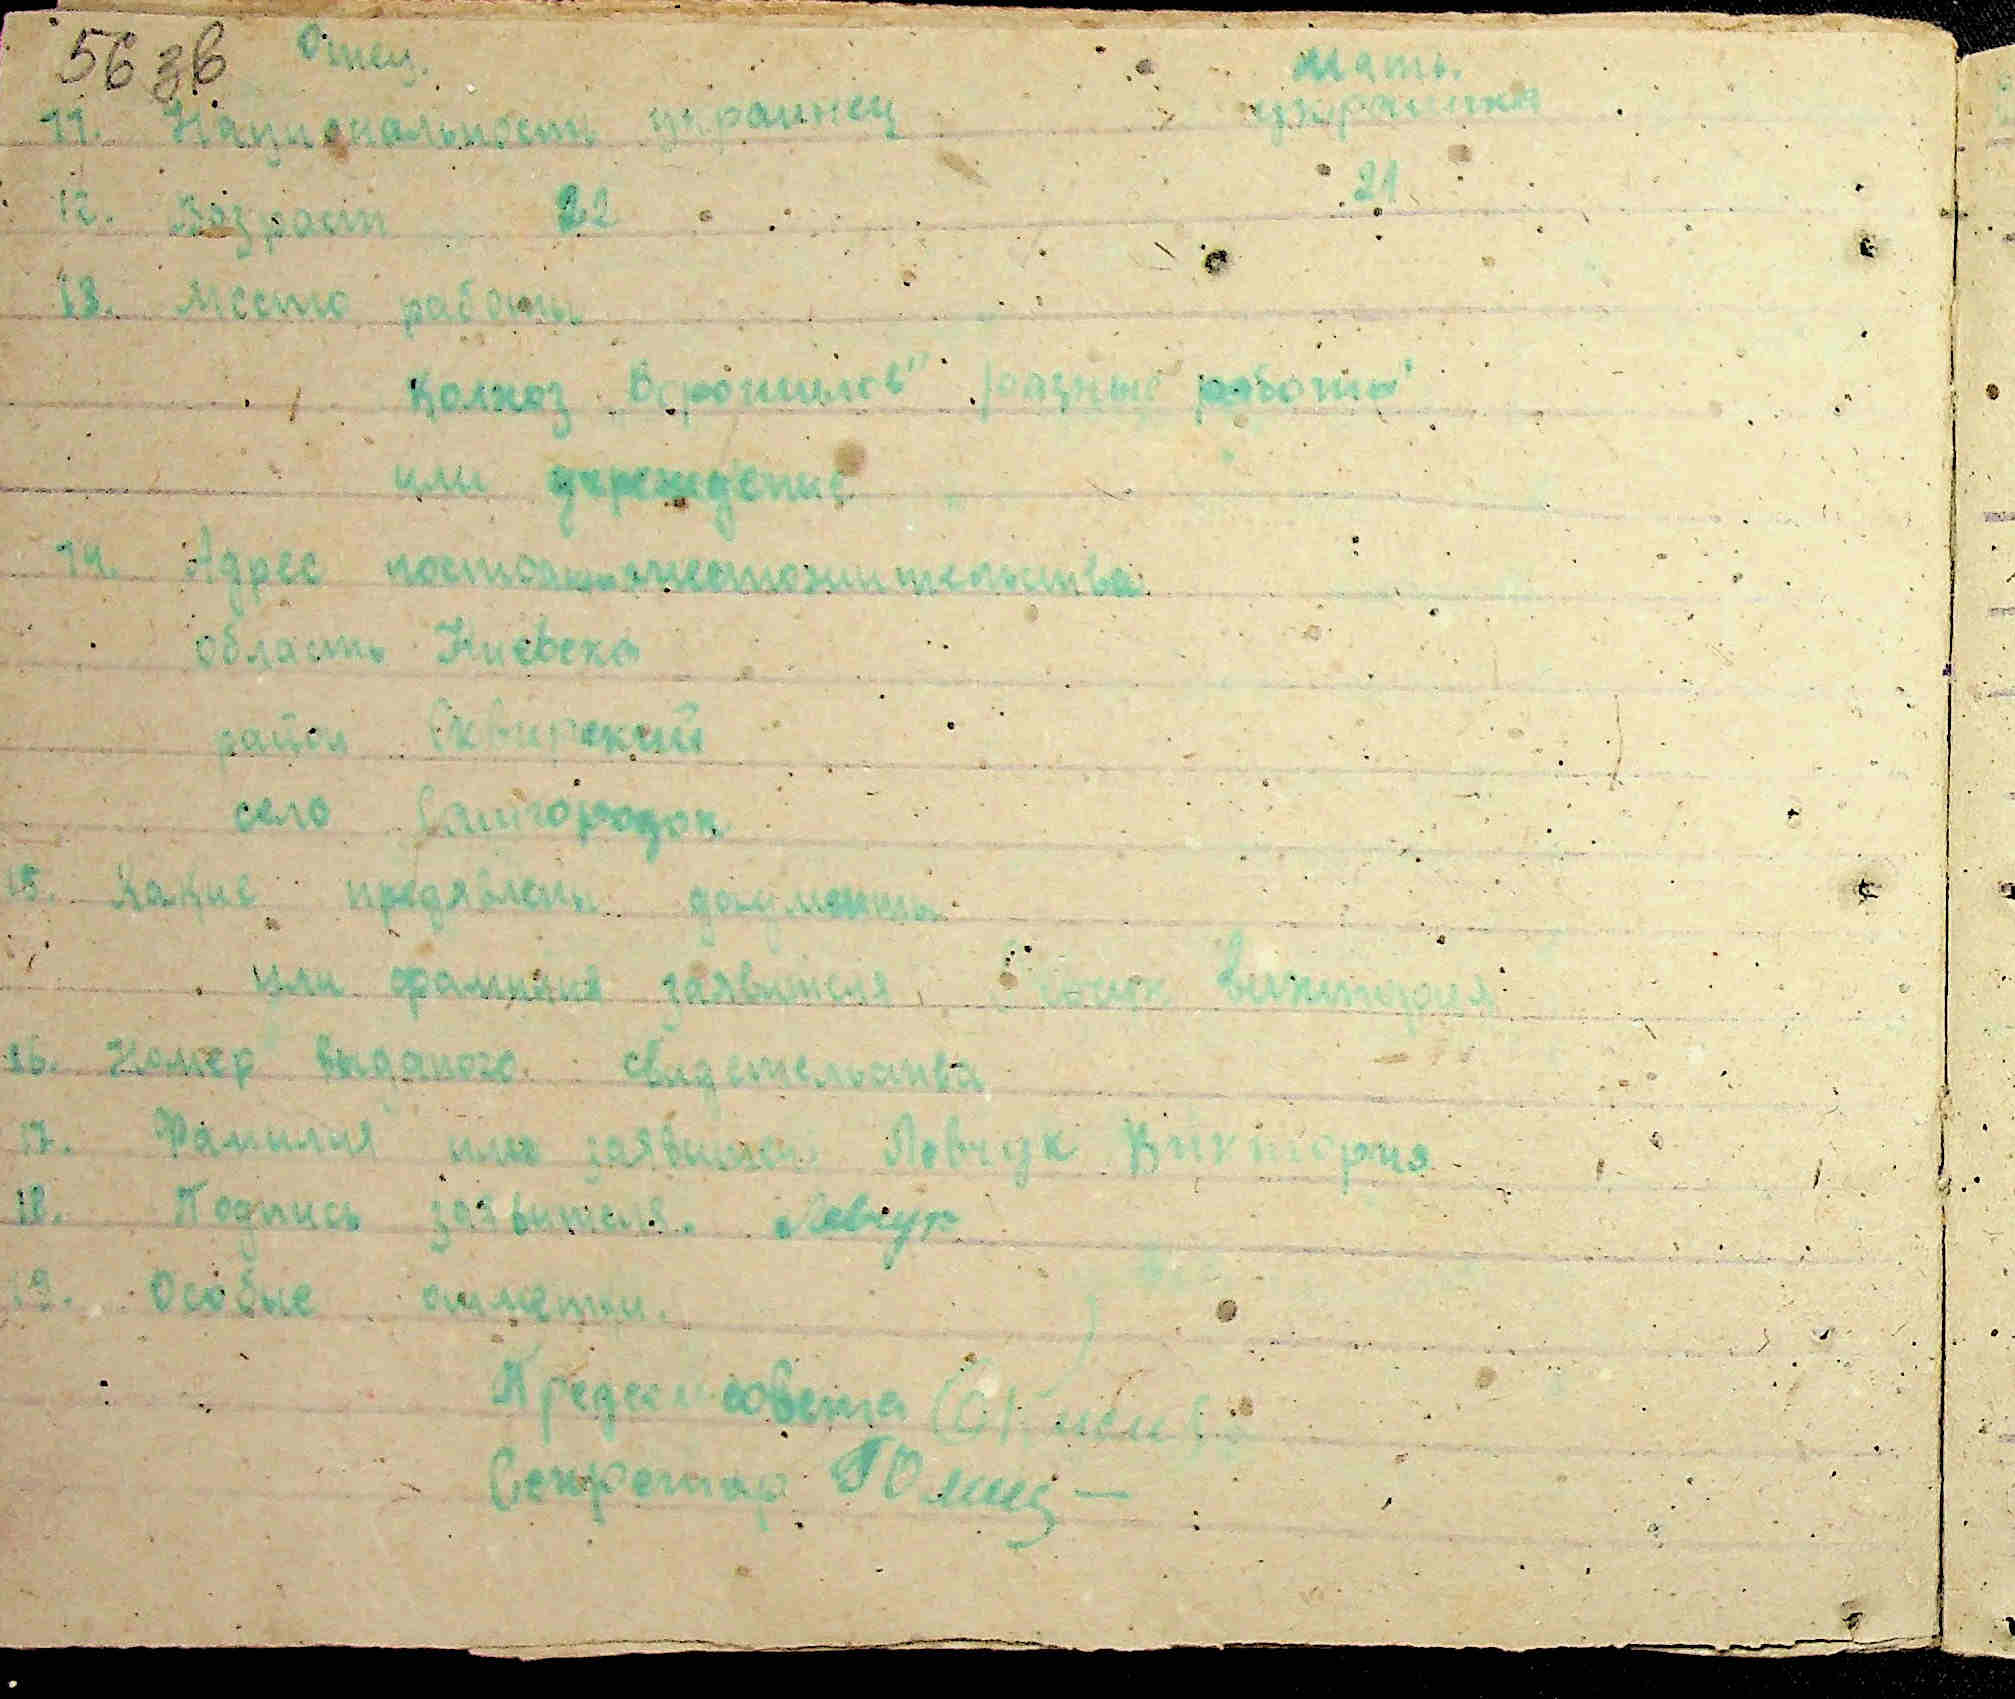 56 зв
Отец. Мать.
11. Национальность украинец украинка
12. Возраст 22 21
13. Место работы
Колхоз „Ворошилов" разные работы
или учреждение
14. Адрес постоян. местожительства
область Киевска
район Сквирский
село Самгородок
15. Какие предявлены документы
или фамилия заявителя Виктория
16. Номер выданого свидетельства
17. Фамилия имя заявителя Левчук Виктория
18. Подпись заявителя. Левчук
19. Особые отметки.
Предсельсовета
Секретар